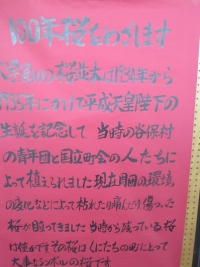 100年桜をめざします
大学通りの桜並木は1934年から
1935年にかけて平成天皇陛下の
生誕を記念して 当時の谷保村
の青年団と国立町会の人たちに
よって植えられました 現在周囲の環境
の変化などによって枯れたり病んだり傷った
桜が目立ってきました 当時から残っている桜
は僅かです その桜はくにたちの町にとって
大事なシンボルの桜です